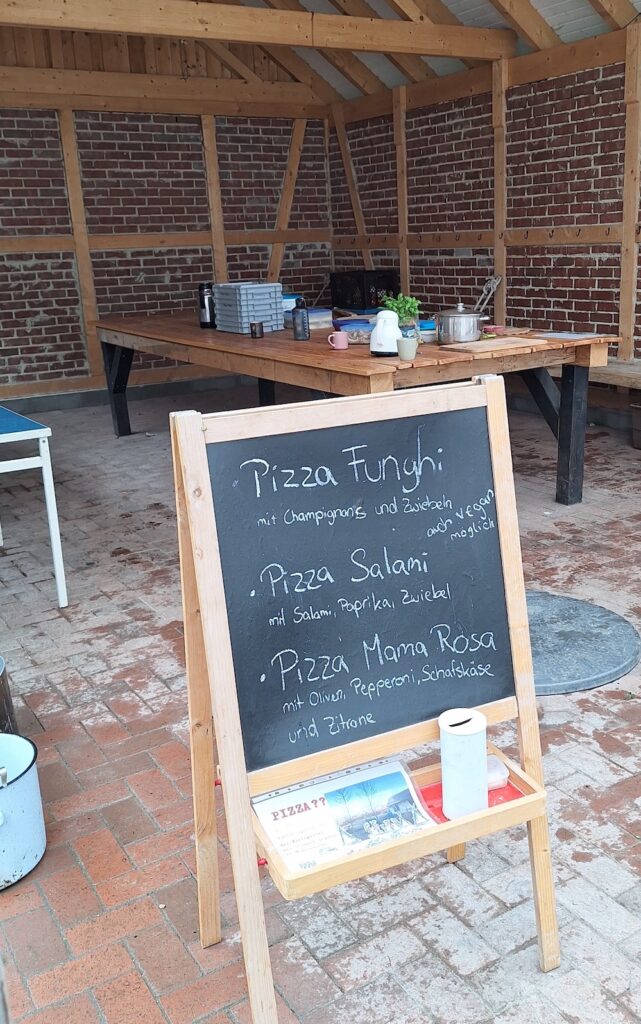 • Pizza Funghi
mit Champignons und Zwiebeln
auch vegan
möglich
• Pizza Salami
mit Salami, Paprika, Zwiebel
• Pizza Mama Rosa
mit Oliven, Pepperoni, Schafskäse
und Zitrone
PIZZA??